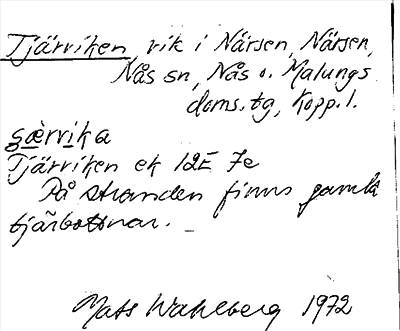 Tjärviken, vik i Närsen, Närsen,
Nås sn, Nås o. Malungs
doms.tg, Kopp.l.
çæ̀rvika
Tjärviken ek 12E 7e
På stranden finns gamla
tjärbottnar.
Mats Wahlberg 1972